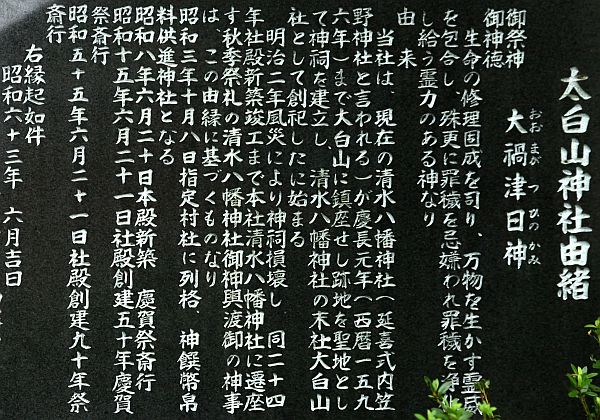 太白山神社由緒
御祭神 大禍津日神
おおまがつひのかみ
御神徳
生命の修理固成を司り、万物を生かす霊威
を包合し、殊更に罪穢を忌嫌われ罪穢を浄化
し給う霊力のある神なり
由来
当社は、現在の清水八幡神社(延喜式内笠
野神社と言われる)が慶長元年(西暦一五九
六年)まで大白山に鎮座せし跡地を聖地とし
て神祠を建立し、清水八幡神社の末社大白山
社として創祀したに始まる
明治二年風災により神祠損壊し、同二十四
年社殿新築竣工まで本社清水八幡神社に遷座
す秋季祭礼の清水八幡神社御神輿渡御の神事
は、この由縁に基づくものなり
昭和三年十月八日指定村社に列格、神饌幣帛
料供進神社となる
昭和八年六月二十日本殿新築 慶賀祭斎行
昭和十五年六月二十一日社殿創建五十年慶賀
祭斎行
昭和五十五年六月二十一日社殿創建九十年祭
斎行
右縁起如件
昭和六十三年 六月吉日